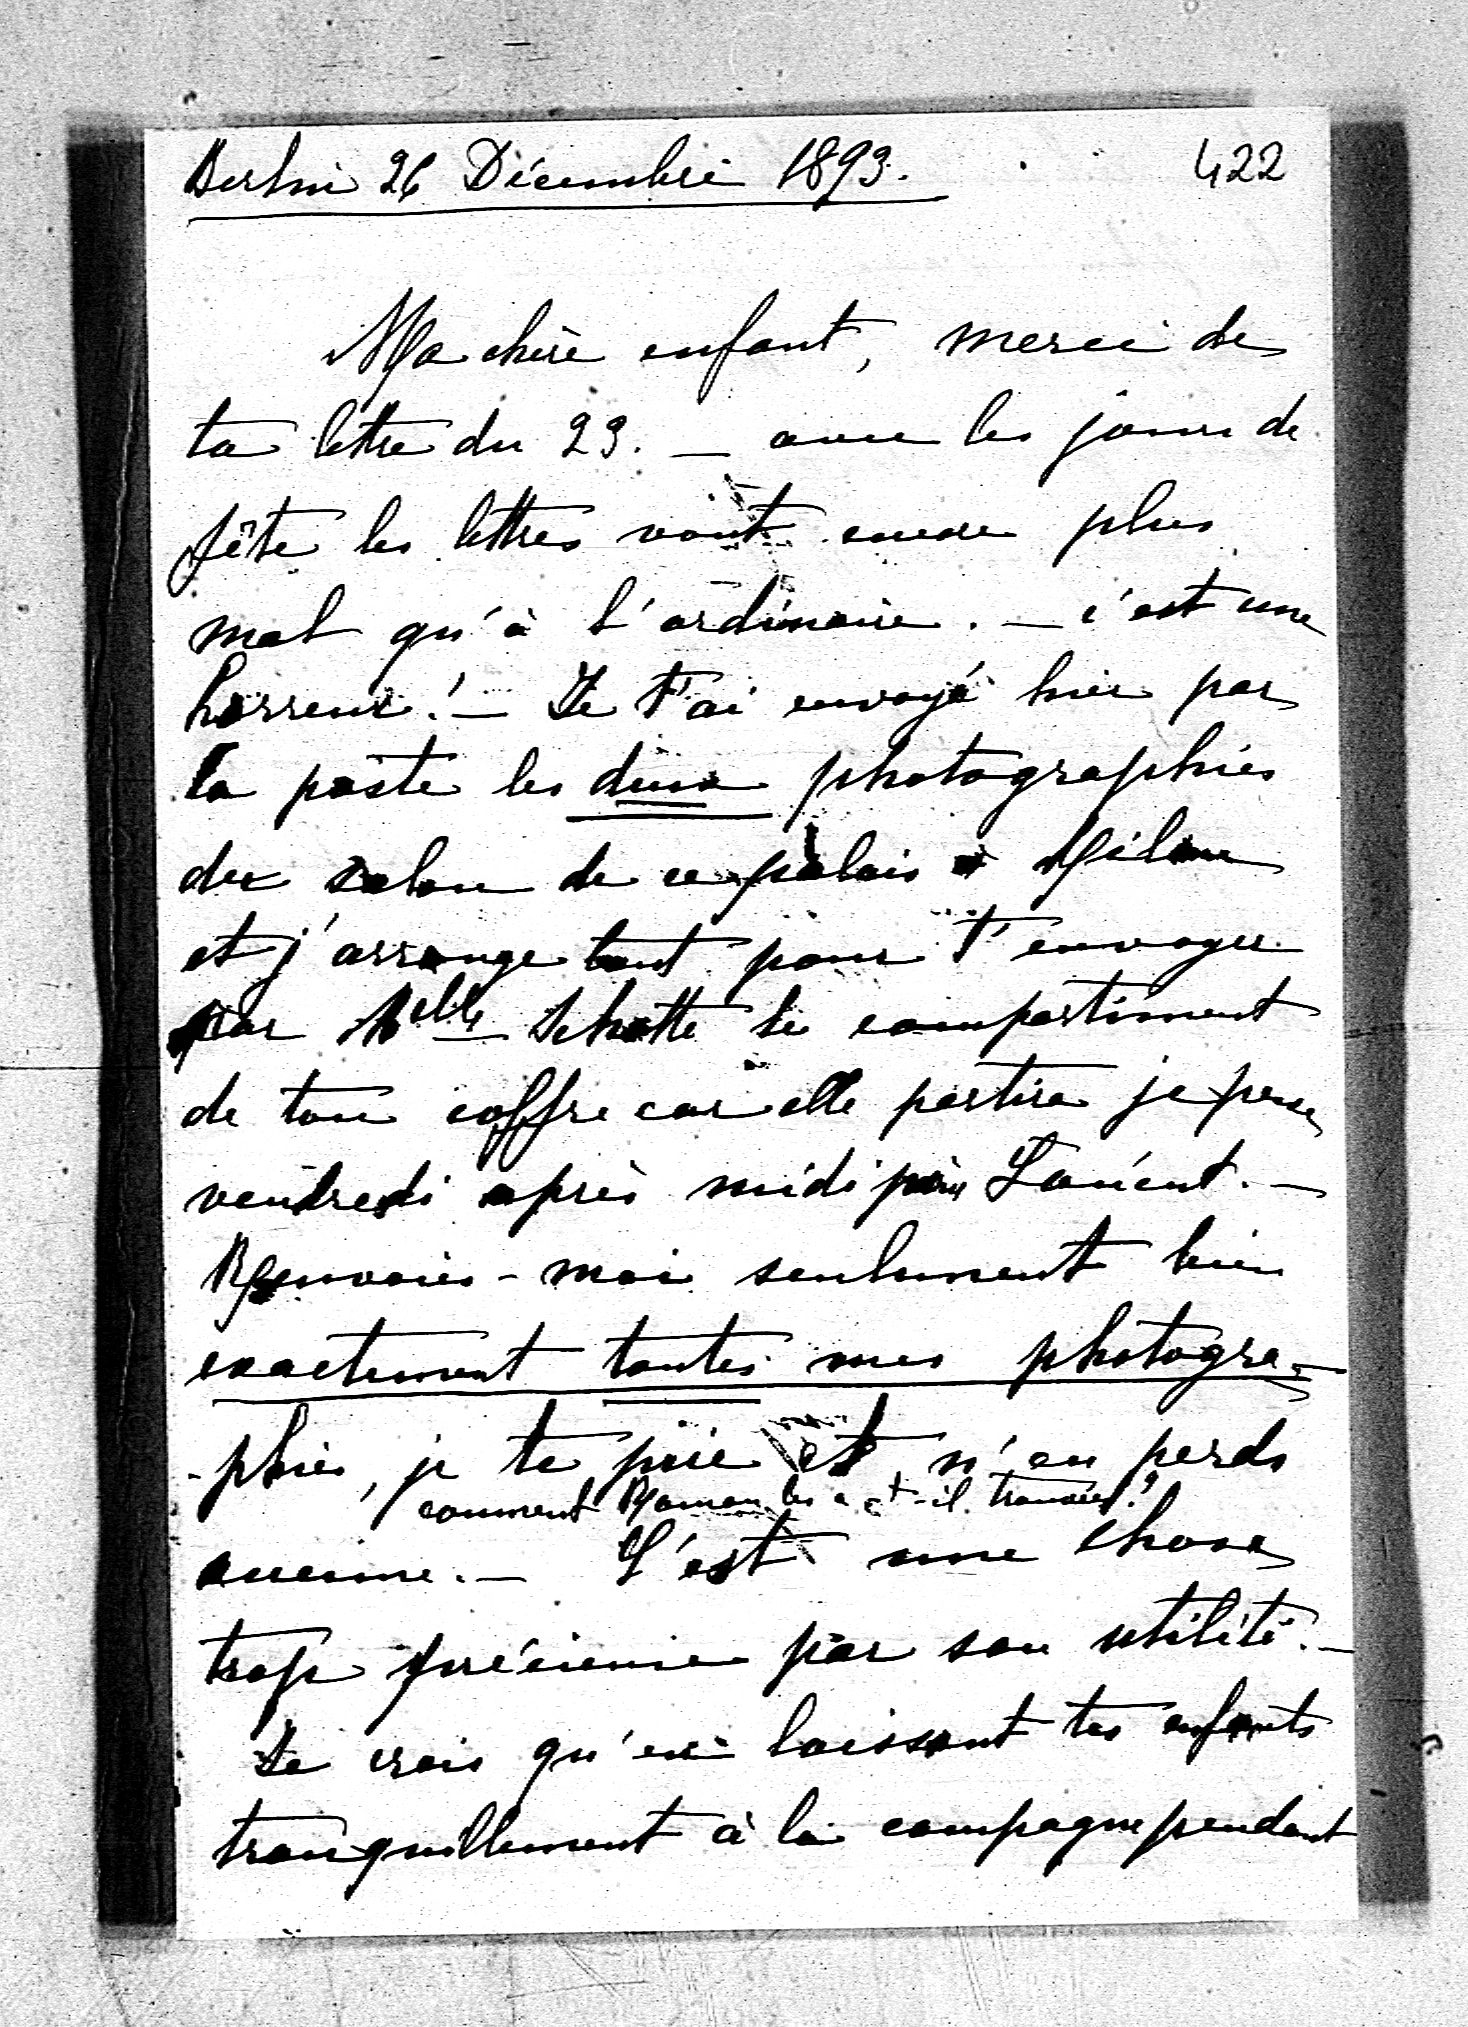 Berlin 26 Décembre 1893. 422
Ma chère enfant, merci de
ta lettre du 23. — avec les jours de
fête les lettres vont encore plus
mal qu'à l'ordinaire. — c'est une
horreur! — Je t'ai envoyé hier par
la poste les deux photographies
du salon de ce palais à Milan
et j'arrange tout pour t'envoyer
par Melle Schotte le compartiment
de ton coffre car elle partira je pense
vendredi après midi pour Lancut. —
Renvoies-moi seulement bien
exactement toutes mes photogra-
-phies, je te prie et n'en perds
comment Roman les a-t-il trouvées?
aucune. — C'est une chose
trop précieuse par son utilité. —
Je crois qu'en laissant tes enfants
tranquillement à la campagne pendant